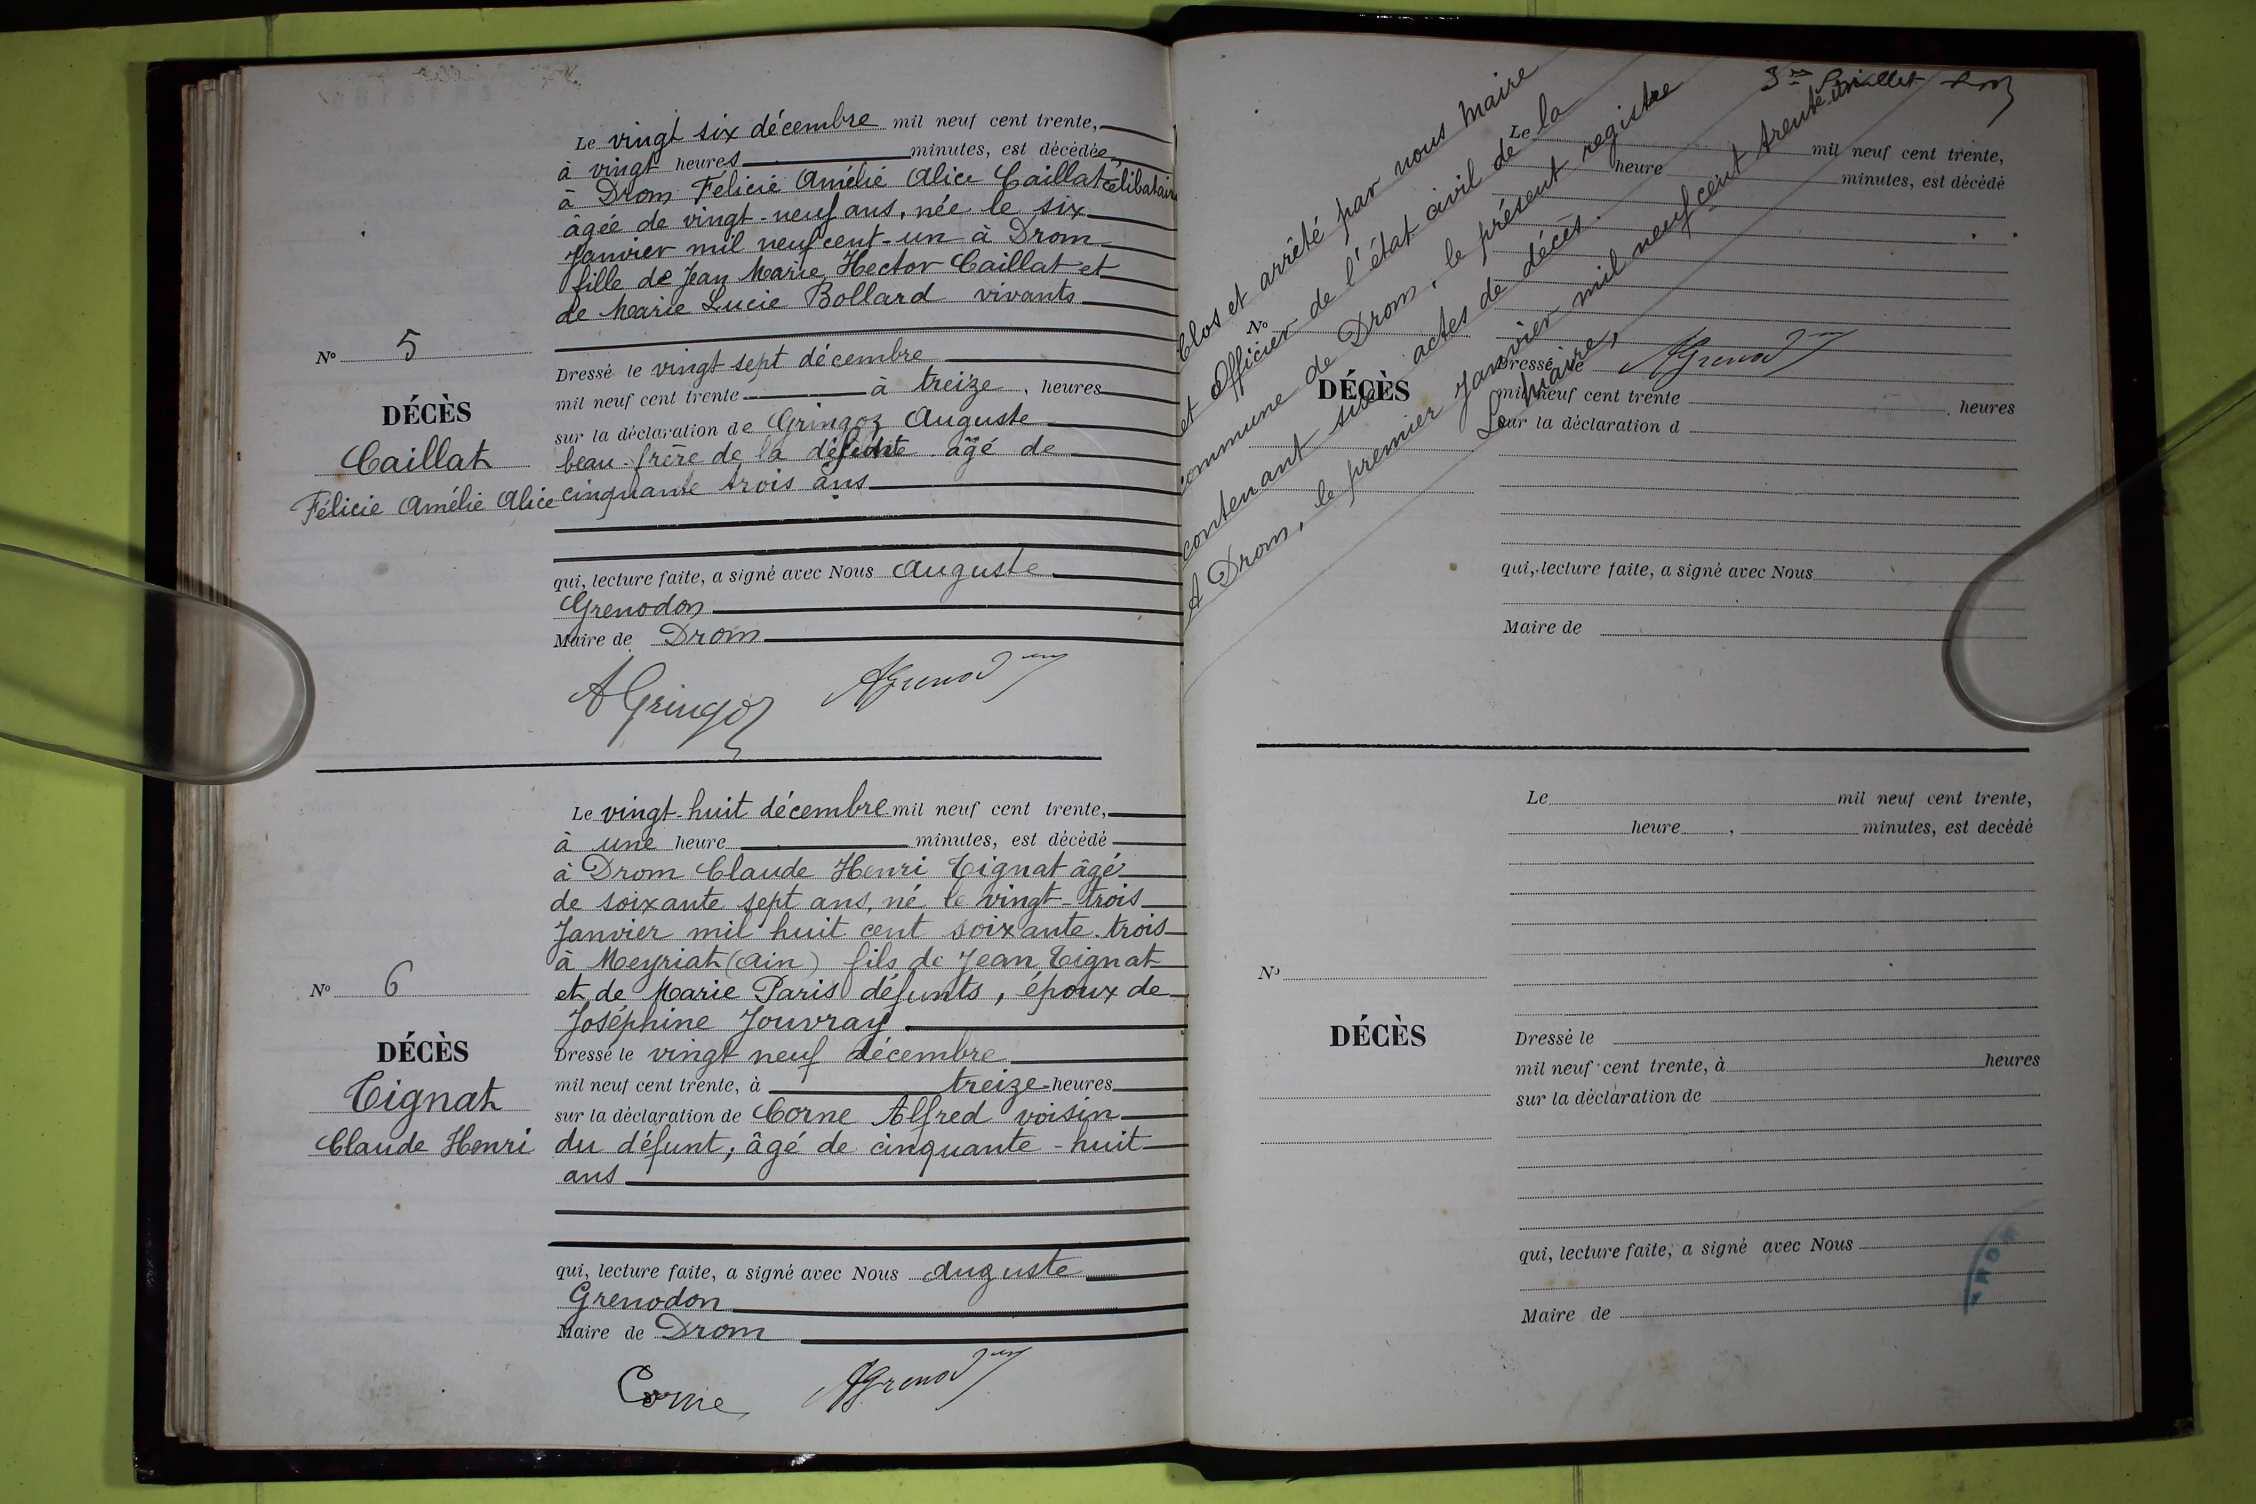 Le vingt six décembre mil neuf cent trente,
à vingt heures minutes, est décédée,
à Drom Félicie Amélie Alice Caillat célibataire
âgée de vingt-neuf ans, née le six
Janvier mil neuf cent-un à Drom
fille de Jean Marie Hector Caillat et
de Marie Lucie Bollard vivants
N° 5
DÉCÈS
Caillat
Félicie Amélie Alice
Dressé le vingt sept décembre
mil neuf cent trente à treize, heures
sur la déclaration de Gringoz Auguste
beau-frère de la défunte âgé de
cinquante trois ans
qui, lecture faite, a signé avec Nous Auguste
Grenodon
Maire de Drom
A Gringoz AGrenodon
Le vingt-huit décembre mil neuf cent trente,
à une heure minutes, est décédé
à Drom Claude Henri Tignat âgé
de soixante sept ans, né le vingt-trois
Janvier mil huit cent soixante-trois
à Meyriat (Ain) fils de Jean Tignat
et de Marie Paris défunts, époux de
Joséphine Jouvray
N° 6
DÉCÈS
Tignat
Claude Henri
Dressé le vingt neuf décembre
mil neuf cent trente, à treize heures
sur la déclaration de Corne Alfred voisin
du défunt, âgé de cinquante-huit
ans
qui, lecture faite, a signé avec Nous Auguste
Grenodon
Maire de Drom
Corne AGrenodon
Clos et arrêté par nous Maire
et Officier de l'état civil de la
commune de Drom, le présent registre
contenant six actes de décès.
A Drom, le premier Janvier mil neuf cent trente un
Le Maire,
AGrenodon
Le mil neuf cent trente,
heure minutes, est décédé
N°
DÉCÈS
Dressé le
mil neuf cent trente heures
sur la déclaration d
qui, lecture faite, a signé avec Nous
Maire de
Le mil neuf cent trente,
heure , minutes, est decédé
N°
DÉCÈS
Dressé le
mil neuf cent trente, à heures
sur la déclaration de
qui, lecture faite, a signé avec Nous
Maire de